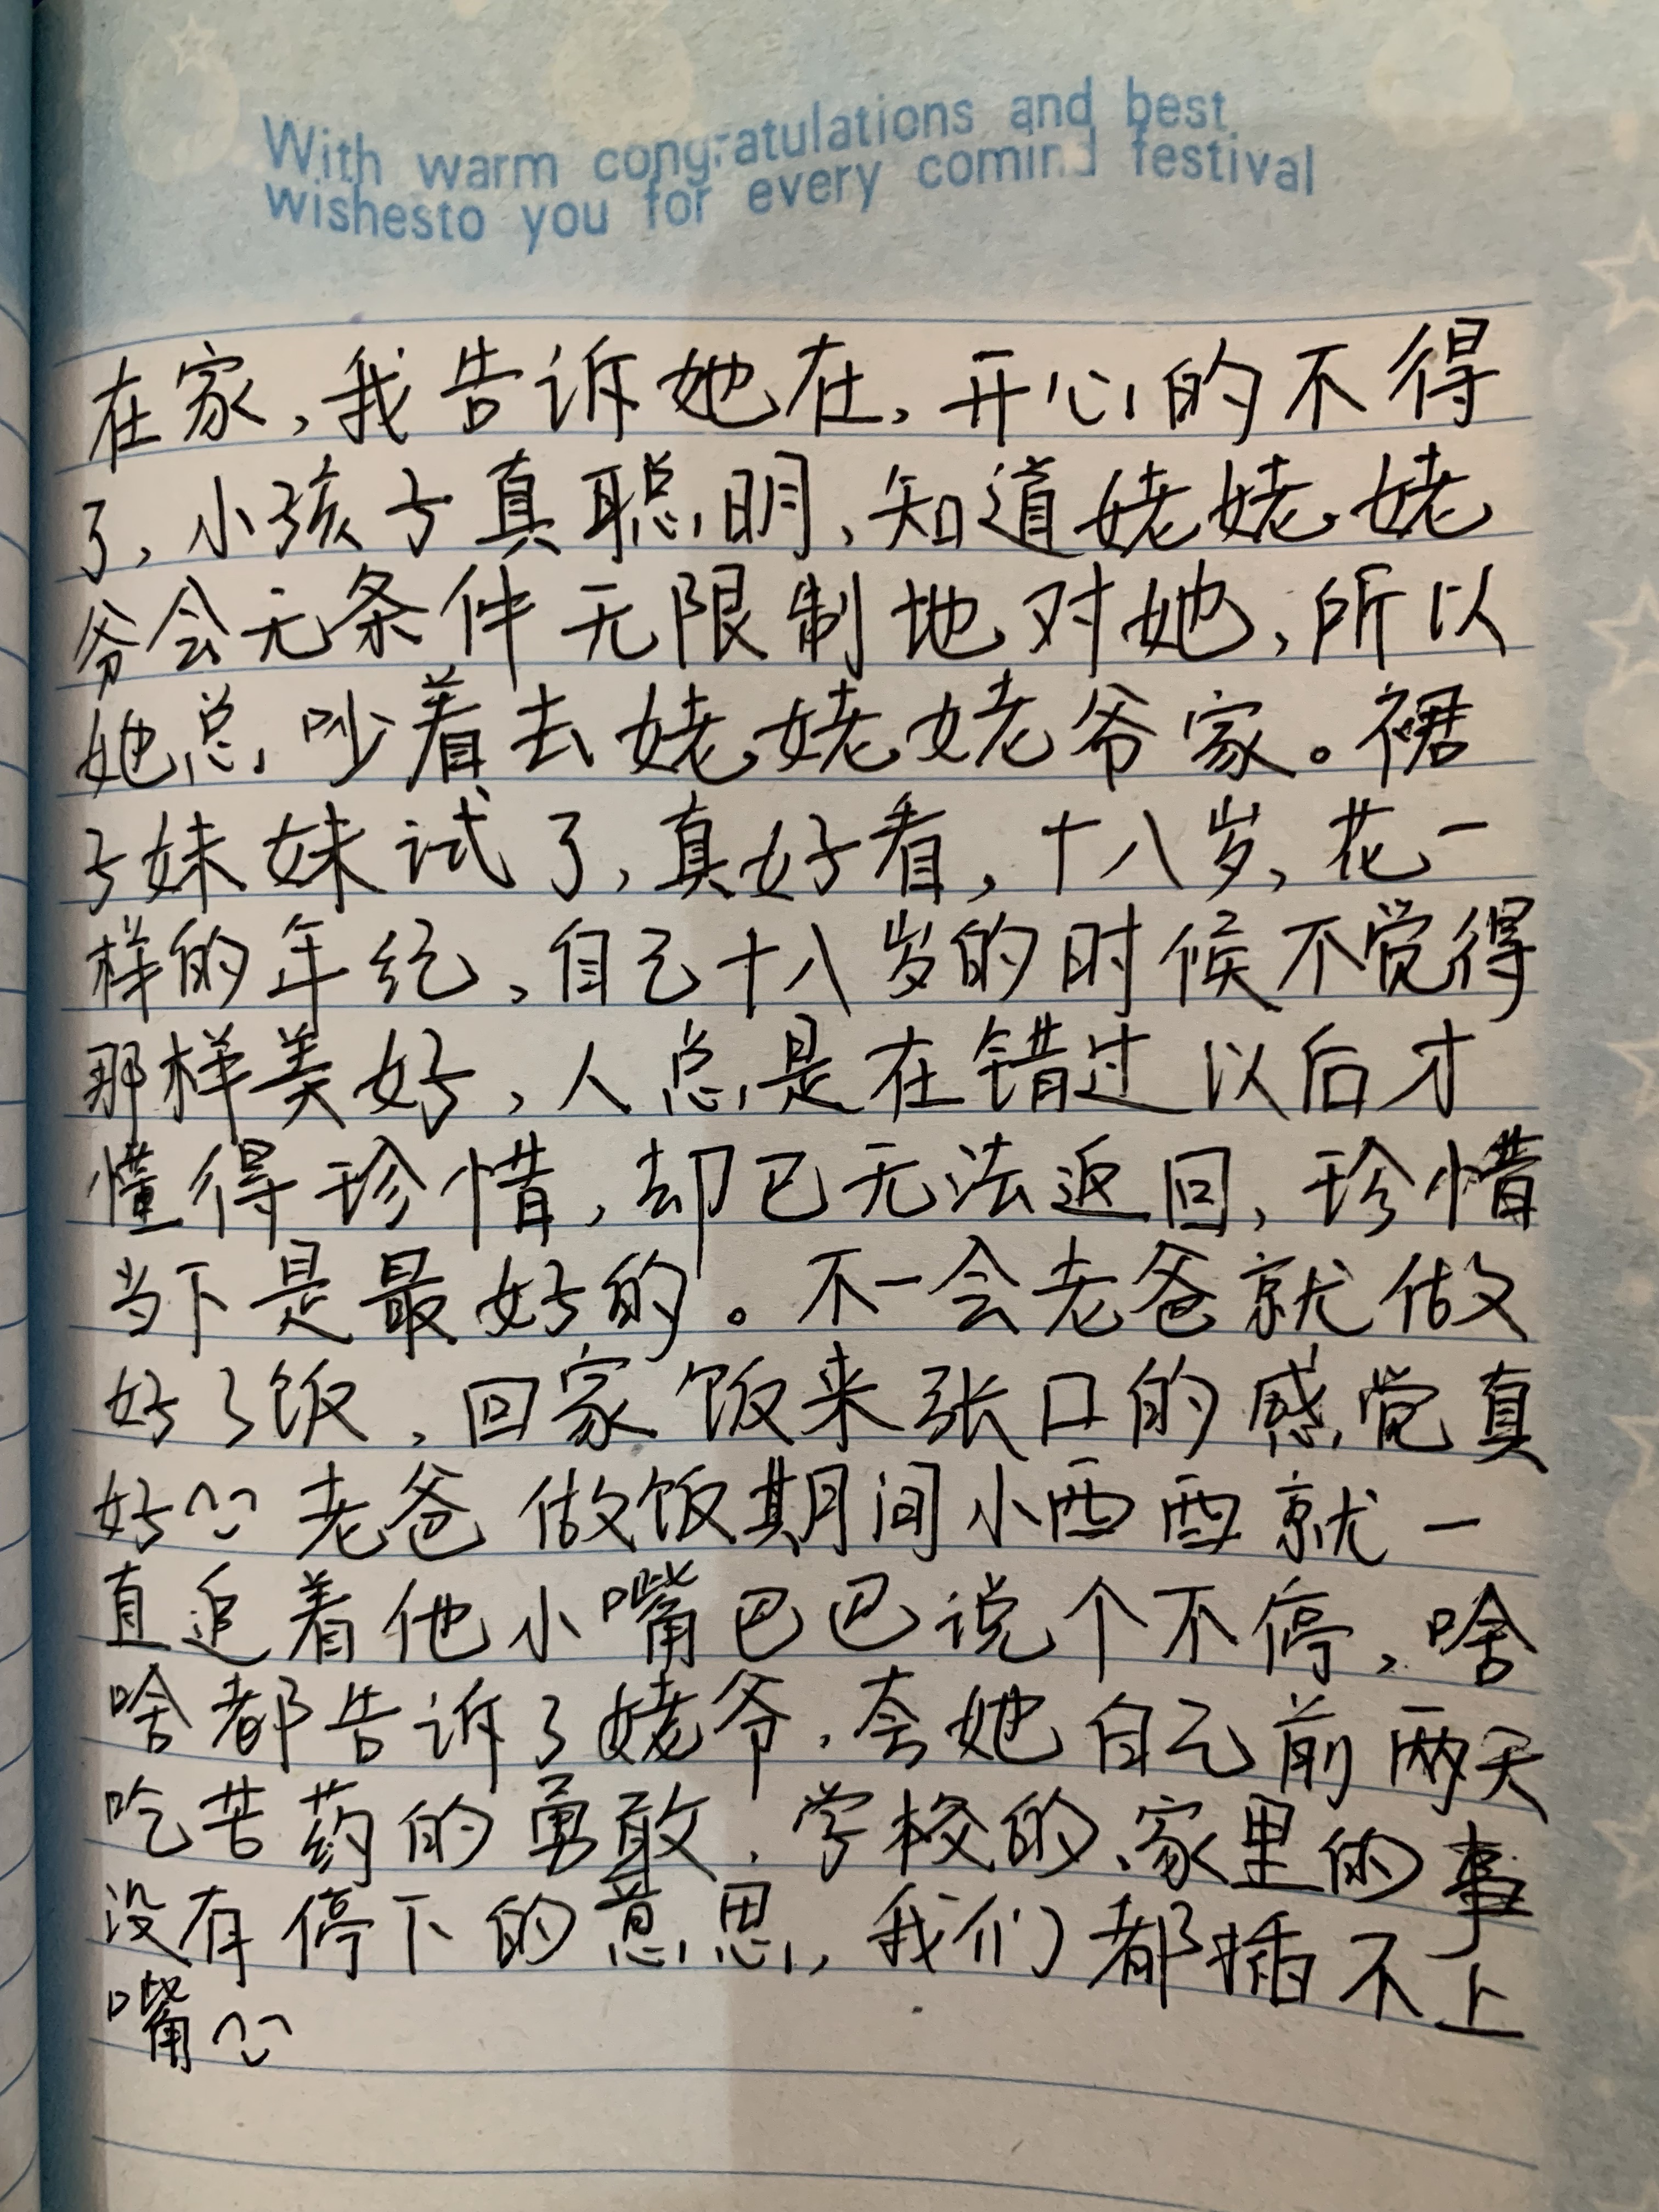 With warm congratulations and best
wishesto you for every comind festival
在家,我告诉她在,开心的不得
了,小孩子真聪明,知道姥姥姥
爷会无条件无限制地对她,所以
她总吵着去姥姥姥爷家。裙
子妹妹试了,真好看,十八岁,花一
样的年纪,自己十八岁的时候不觉得
那样美好,人总是在错过以后才
懂得珍惜,却已无法返回,珍惜
当下是最好的。不一会老爸就做
好了饭,回家饭来张口的感觉真
好^_^老爸做饭期间小西西就一
直追着他小嘴巴巴说个不停,啥
啥都告诉了姥爷,夸她自己前两天
吃苦药的勇敢,学校的、家里的事
没有停下的意思,我们都插不上
嘴^_^